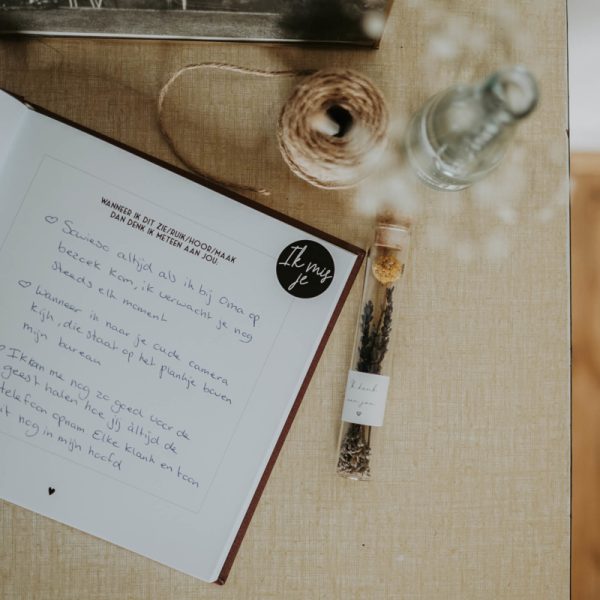 WANNEER IK DIT ZIE/RUIK/HOOR/MAAK
DAN DENK IK METEEN AAN JOU.
Sowieso altijd als ik bij Oma op
bezoek kom, ik verwacht je nog
steeds elk moment
Wanneer ik naar je oude camera
kijk, die staat op het plankje boven
mijn bureau
Ik kan me nog zo goed voor de
geest halen hoe jij altijd de
telefoon opnam Elke klank en toon
zit nog in mijn hoofd
Ik mis
je
Ik denk
aan jou